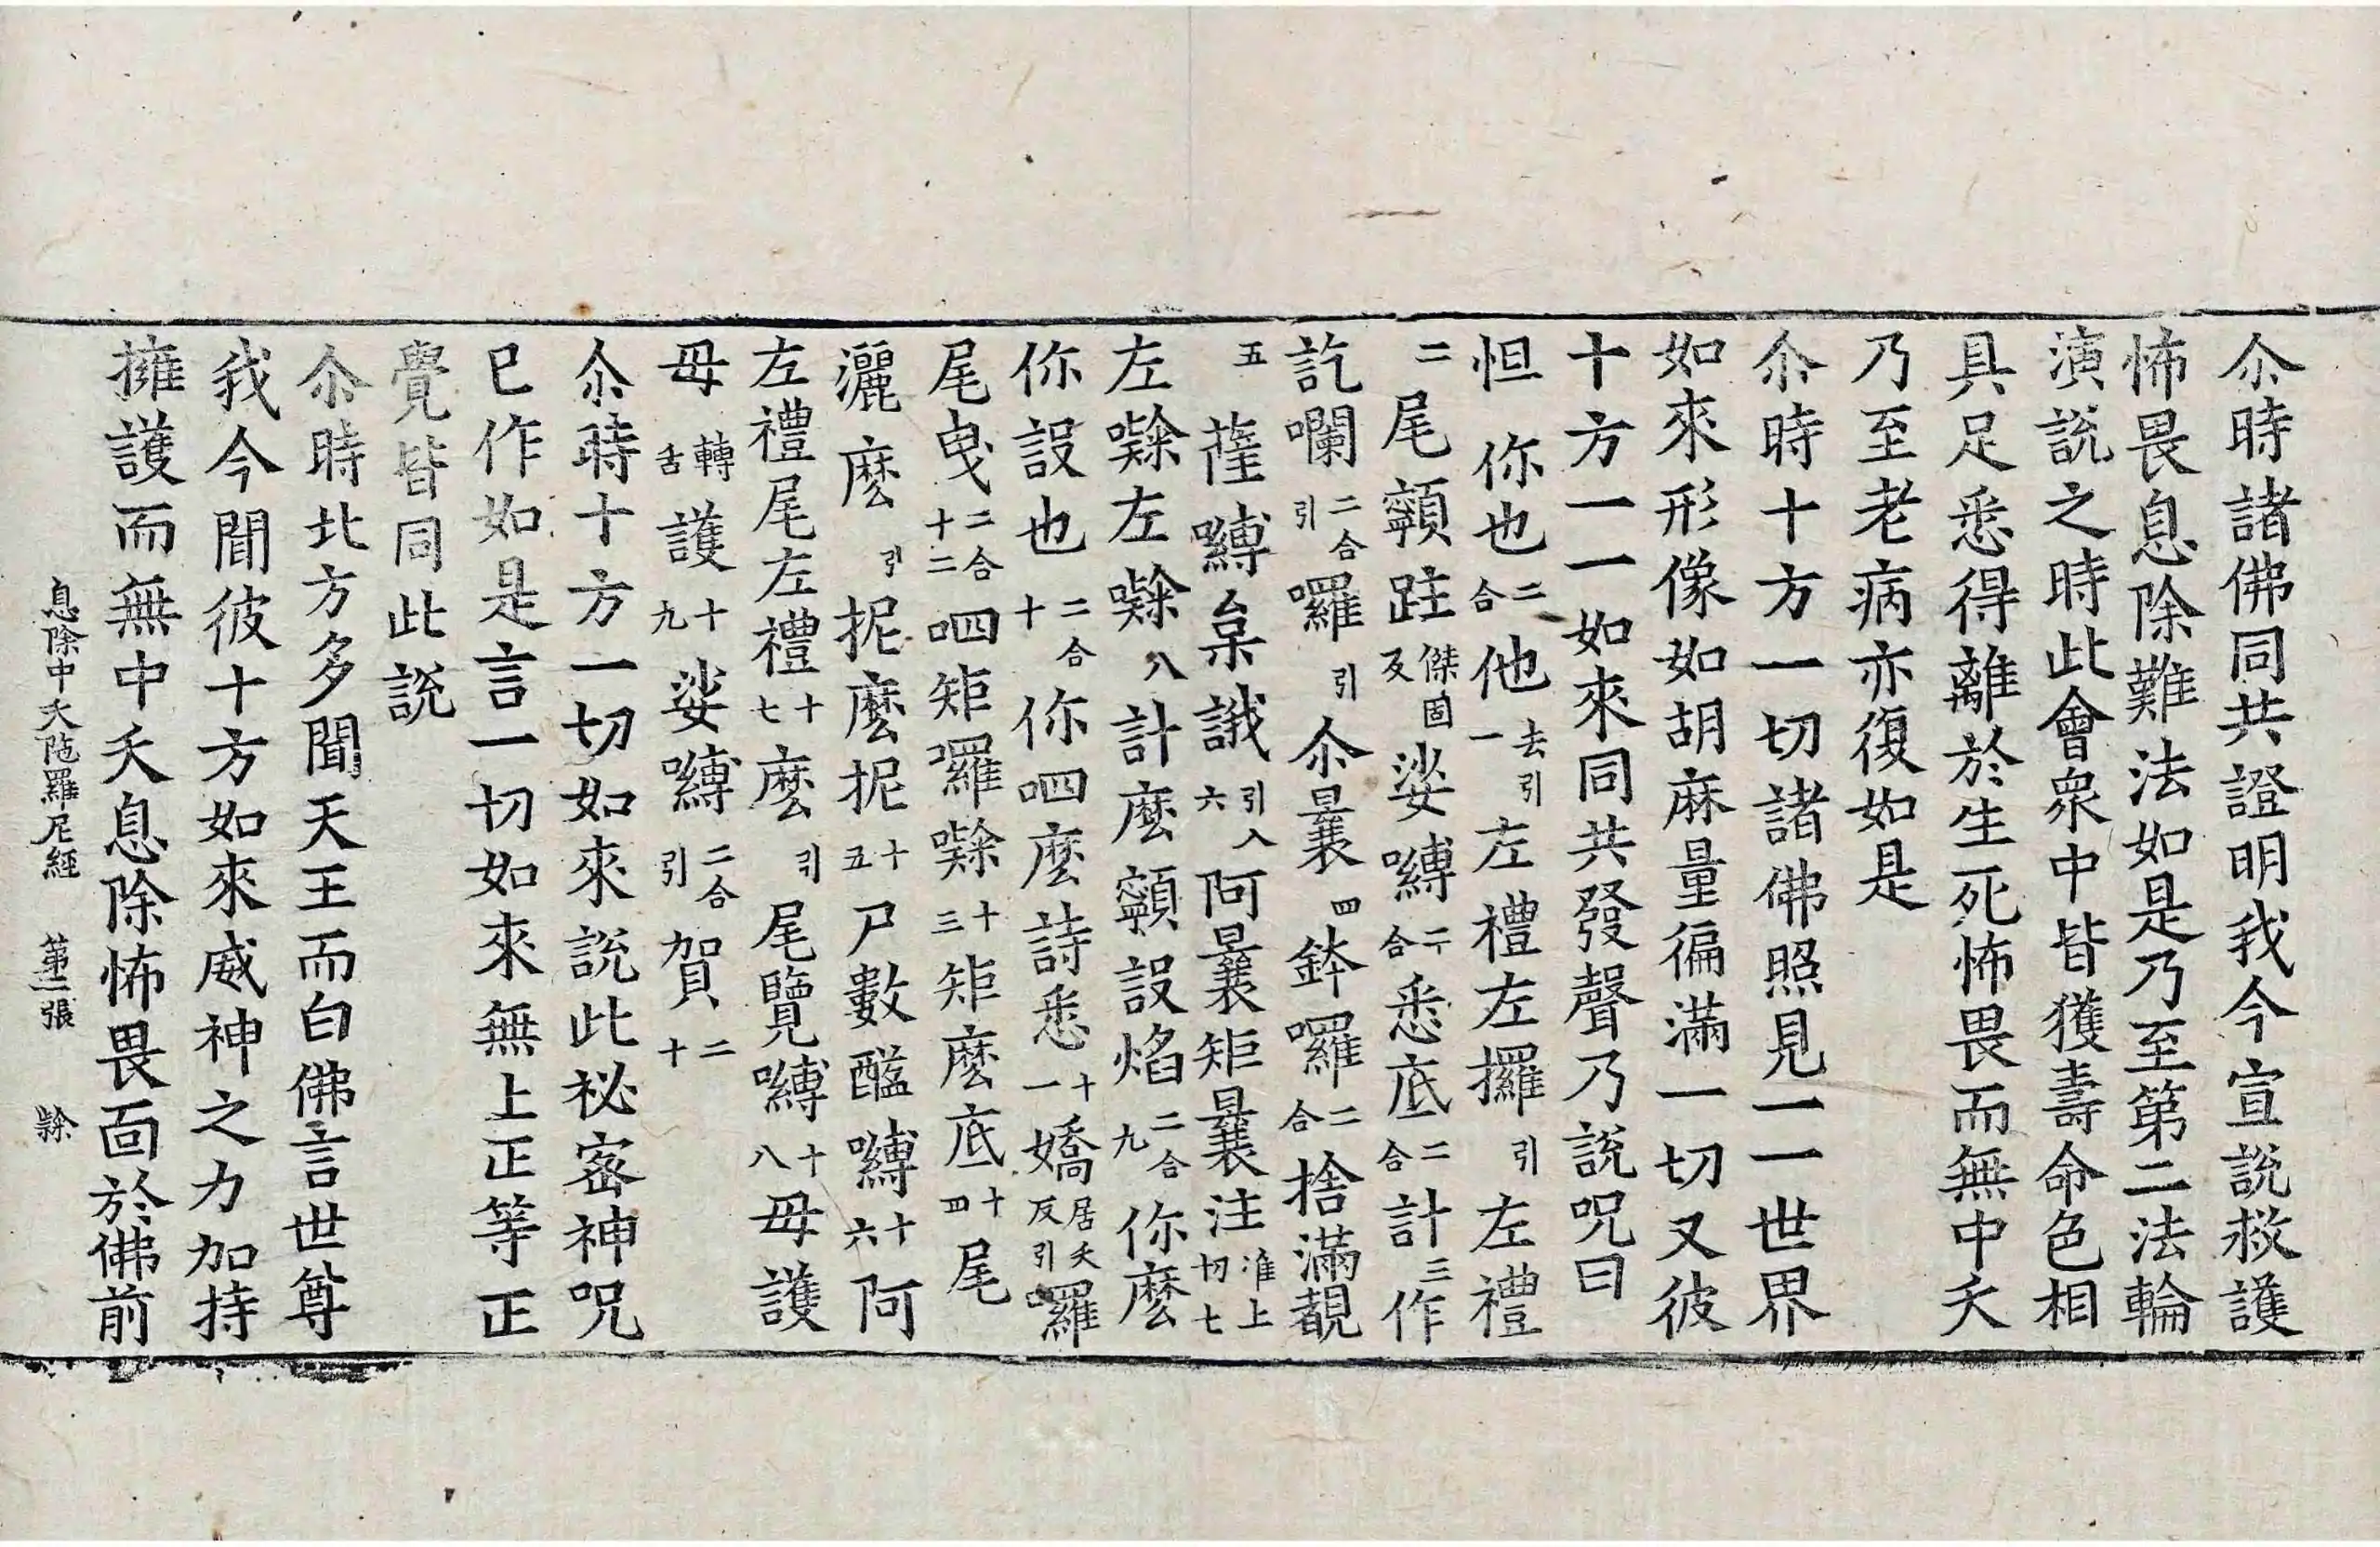 尒時諸佛同共證明我今宣說救護
怖畏息除難法如是乃至第二法輪
演說之時此會衆中皆獲壽命色相
具足悉得離於生死怖畏而無中夭
乃至老病亦復如是
尒時十方一切諸佛照見一一世界
如來形像如胡麻量徧滿一切又彼
十方一一如來同共發聲乃說呪曰
怛你也二合他去引一左禮左攞引左禮
二尾顊跓傑固反娑嚩二合悉底二合計三作
訖囒二合引囉引尒曩四鉢囉二合捨滿覩
五薩嚩枲誐引六入阿曩矩曩注淮上切七
左㘑左㘑八計麼顊設焰二合九你麼
你設也二合十你呬麼詩悉十一嬌居夭反引囉
尾曳二合十二呬矩囉㘑十三矩麼底十四尾
灑麼引抳麼抳十五尸數醯嚩十六阿
左禮尾左禮十七麼引尾覽嚩十八毋護
毋轉舌護十九娑嚩二合引賀二十
尒時十方一切如來說此祕密神呪
已作如是言一切如來無上正等正
覺皆同此說
尒時北方多聞天王而白佛言世尊
我今聞彼十方如來威神之力加持
擁護而無中夭息除怖畏面於佛前
息除中夭陁羅尼經 第二張 隸